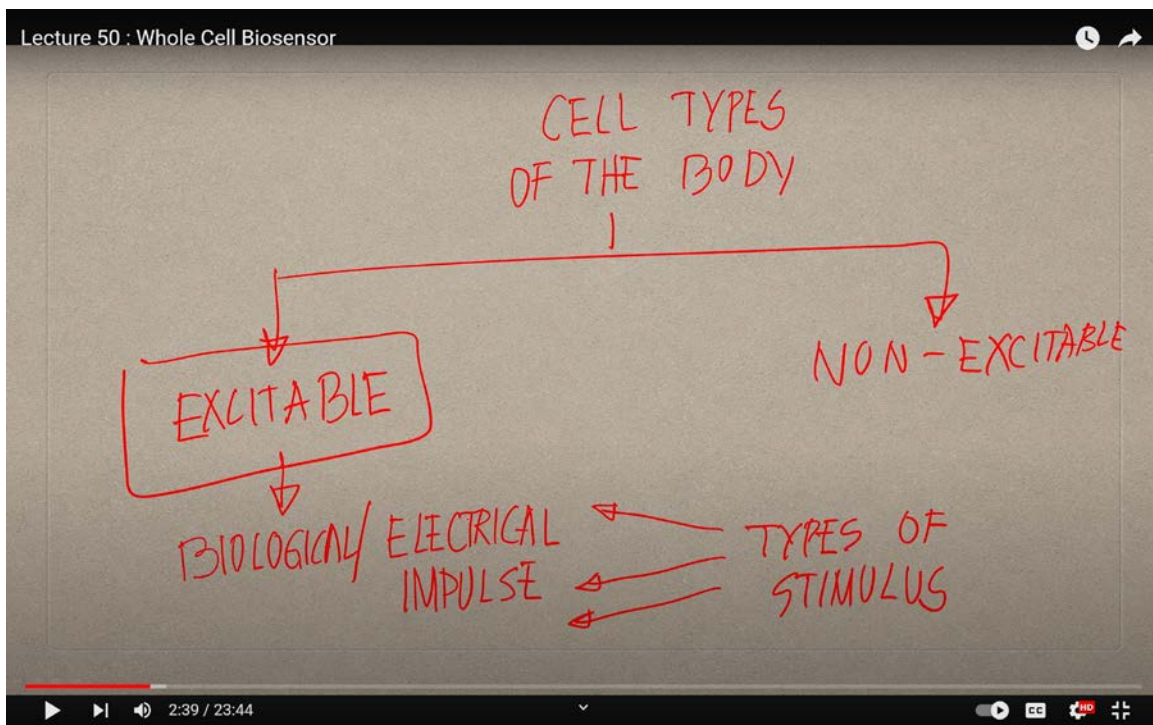 Lecture 50 : Whole Cell Biosensor
CELL TYPES
OF THE BODY
EXCITABLE
NON-EXCITABLE
BIOLOGICAL/ ELECTRICAL
IMPULSE
TYPES OF
STIMULUS
2:39 / 23:44
CC
HD